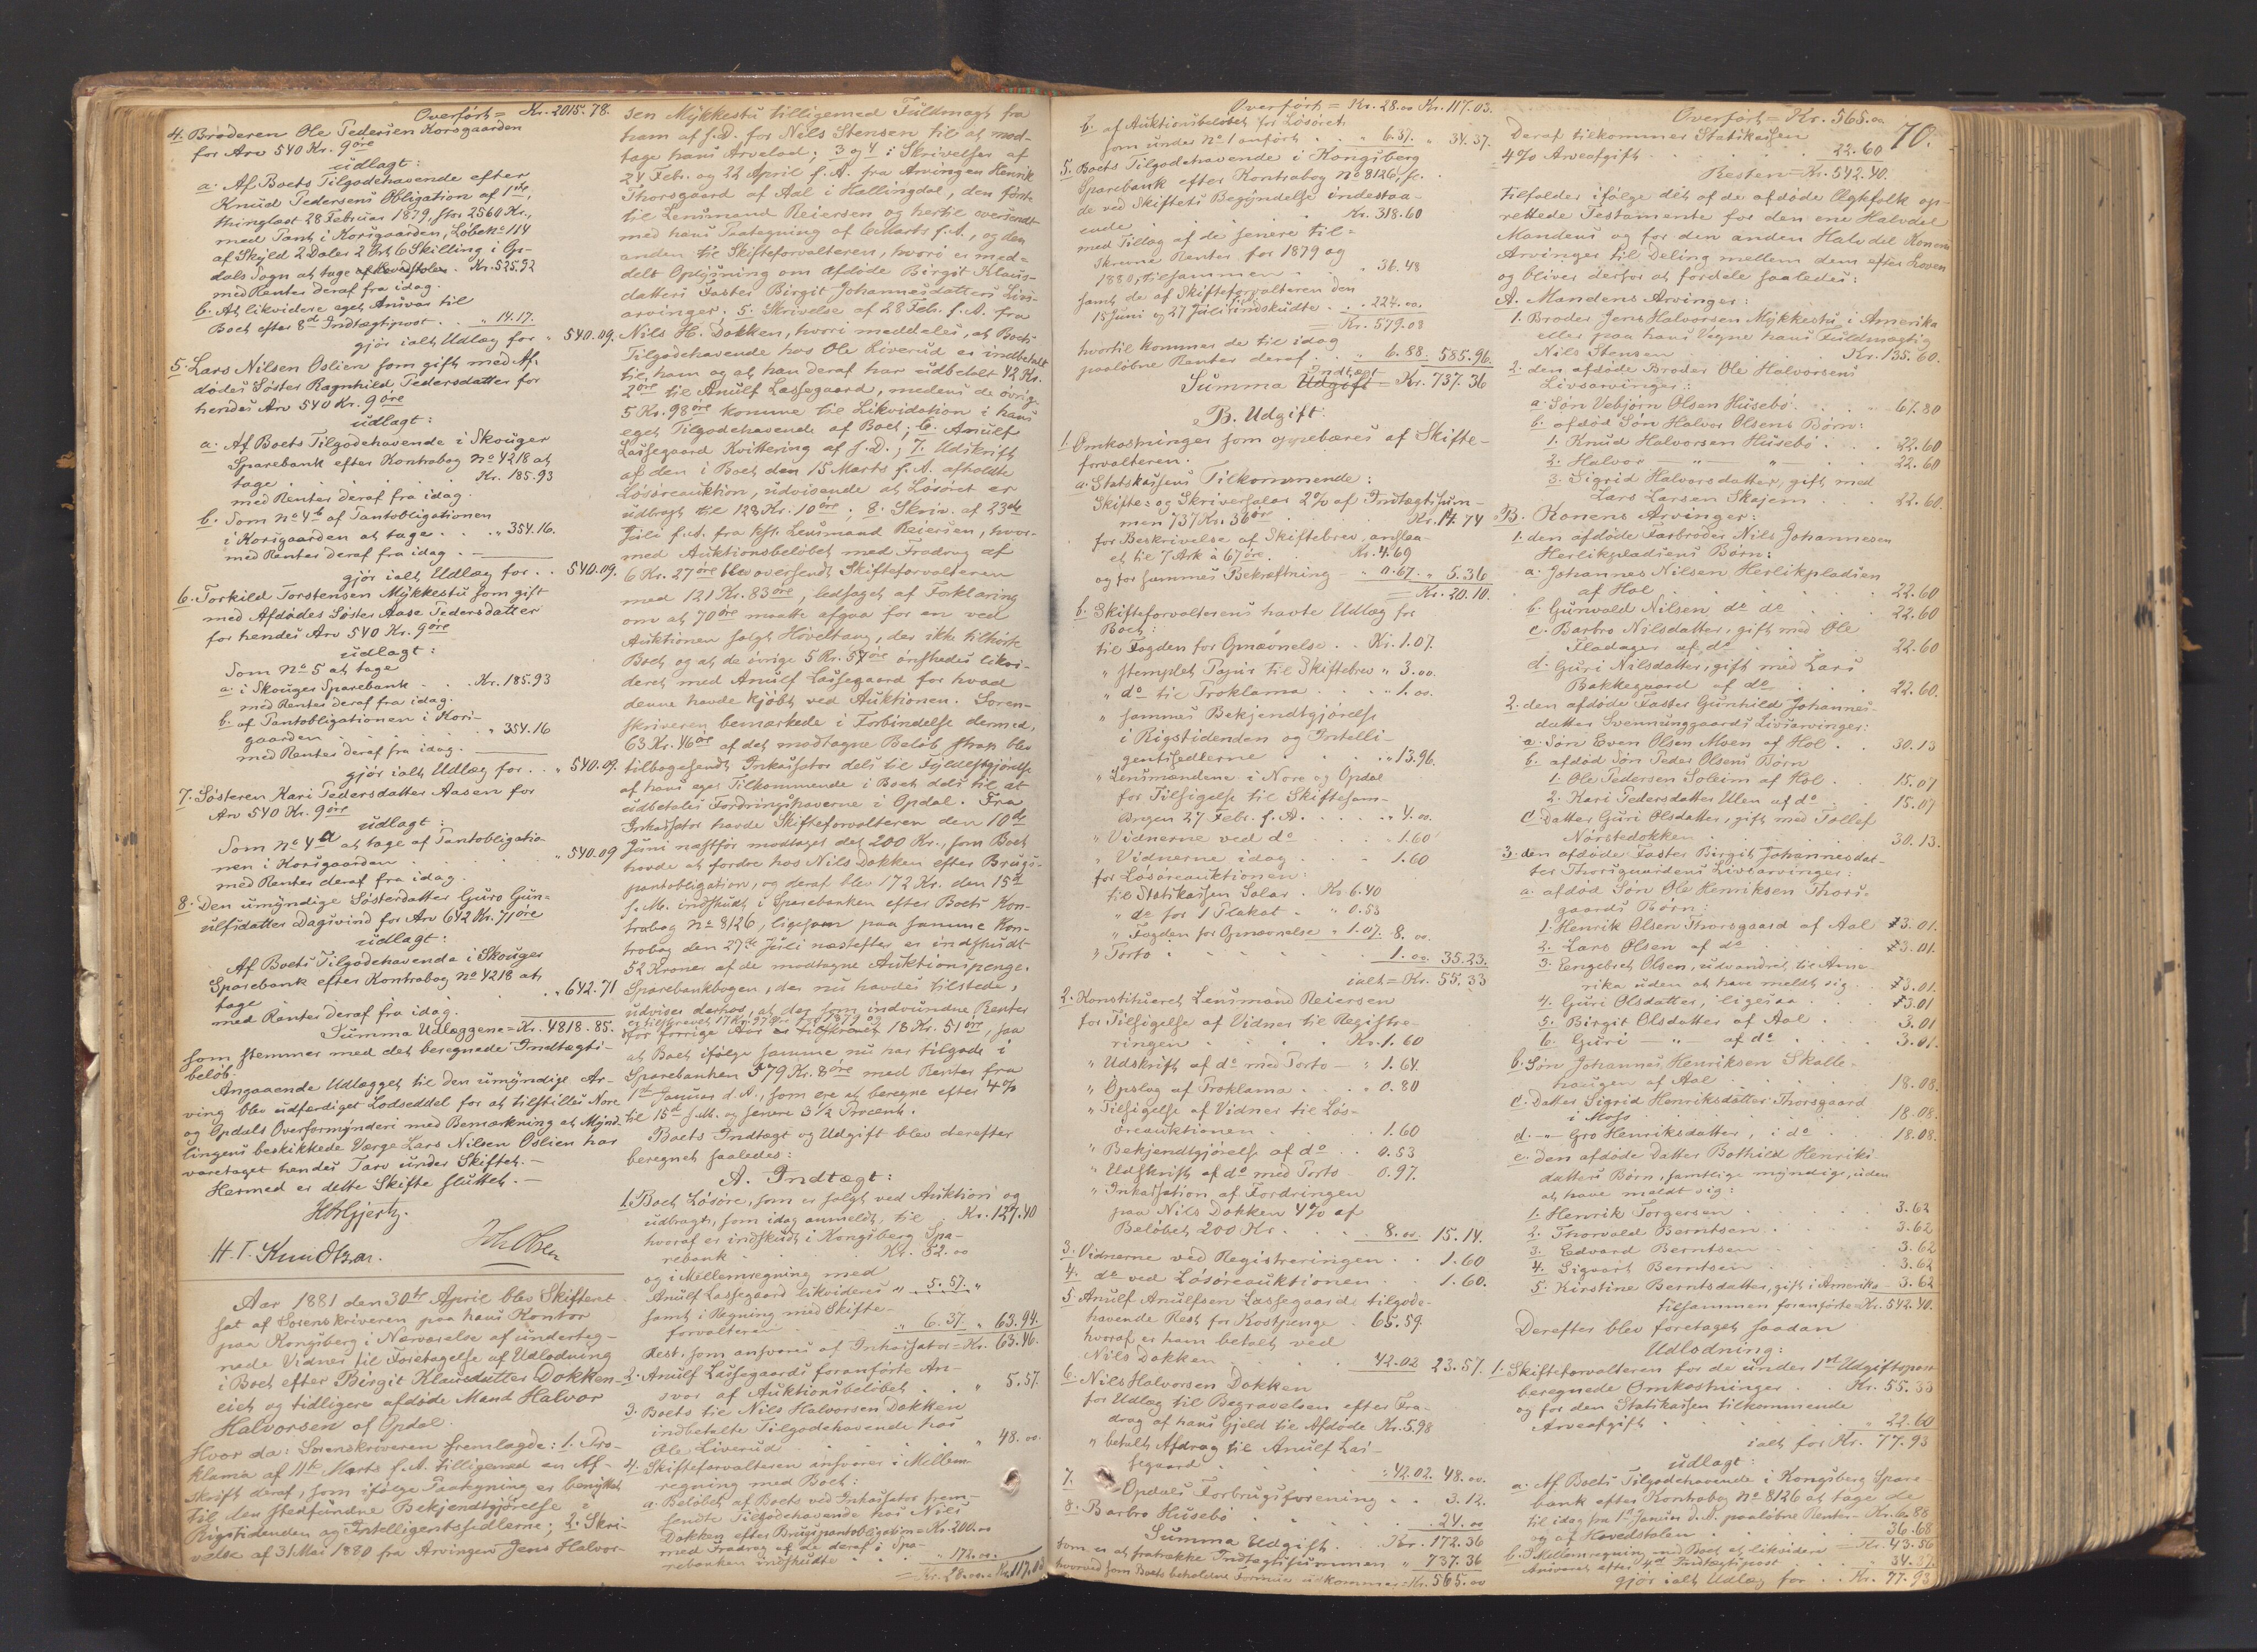 Overført = Kr. 2015.78.
4. Broderen Ole Pedersen Korsgaarden
for Arv 540 Kr. 9 øre
udlagt:
a. Af Boets Tilgodehavende efter
Knud Pedersens Obligation af 1ste,
thinglæst 28 Februar 1879, stor 2560 Kr.,
med Pant i Korsgaarden, Løbeno 114
af Skyld 2 Daler 2 Ort 6 Skilling i Op-
dals Sogn at tage af Hovedstolen . Kr. 525.92
med Renter deraf fra idag.
b. At likvidere eget Ansvar til
Boet efter 8de Indtægtspost . . " 14.17.
gjør ialt Udlæg for " 540.09.
5. Lars Nilsen Oslien som gift med Af-
dødes Søster Ragnhild Pedersdatter for
hendes Arv 540 Kr. 9 øre
udlagt:
a. Af Boets Tilgodehavende i Skouger
Sparebank efter Kontrabog No 4218 at
tage . . . . Kr. 185.93
med Renter deraf fra idag.
b. Som No 4 b af Pantobligationen
i Korsgaarden at tage . . . " 354.16.
med Renter deraf fra idag.
gjør ialt Udlæg for . . 540.09.
6. Torkild Torstensen Mykkestu som gift
med Afdødes Søster Aase Pedersdatter
for hendes Arv 540 Kr. 9 øre
udlagt:
Som No 5 at tage
a. i Skouger Sparebank . . . Kr. 185.93
med Renter deraf fra idag.
b. af Pantobligationen i Kors-
gaarden . . . . " 354.16
med Renter deraf fra idag.
gjør ialt Udlæg for . . " 540.09.
7. Søsteren Kari Pedersdatter Aasen for
Arv 540 Kr. 9 øre
udlagt:
Som No 4 a at tage af Pantobligatio-
nen i Korsgaarden . . . " 540.09
med Renter deraf fra idag.
8. Den umyndige Søsterdatter Guro Gun-
ulfsdatter Dagsvind for Arv 642 Kr. 71 øre
udlagt:
Af Boets Tilgodehavende i Skouger
Sparebank efter Kontrabog No 4218 at
tage . . . . " 642.71
med Renter deraf fra idag.
Summa Udlæggene = Kr. 4818.85.
som stemmer med det beregnede Indtægts-
beløb.
Angaaende Udlægget til den umyndige Ar-
ving blev udfærdiget Lodseddel for at tilstilles Nore
og Opdals Overformynderi med Bemærkning at Mynd-
lingens beskikkede Værge Lars Nilsen Oslien har
varetaget hendes Tarv under Skiftet. —
Hermed er dette Skifte sluttet. —
H. T. Knudtzen.
Aar 1881 den 30te April blev Skifteret
sat af Sorenskriveren paa hans Kontor
paa Kongsberg i Nærværelse af underteg-
nede Vidner til Foretagelse af Udlodning
i Boet efter Birgit Klausdatter Dokken-
eiet og tidligere afdøde Mand Halvor
Halvorsen af Opdal.
Hvor da: Sorenskriveren fremlagde: 1. Pro-
klama af 11te Marts f. A. tilligemed en Af-
skrift deraf, som ifølge Paategning er benyttet
til den stedfundne Bekjendtgjørelse i
Rigstidenden og Intelligentssedlerne; 2. Skri-
velse af 31 Mai 1880 fra Arvingen Jens Halvor-
sen Mykkestu tilligemed Fuldmagt fra
ham af s. D. for Nils Stensen til at mod-
tage hans Arvelod; 3 og 4: Skrivelser af
24 Feb. og 22 April f. A. fra Arvingen Henrik
Thorsgaard af Aal i Hallingdal, den første
til Lensmand Reiersen og hertil oversendt
med hans Paategning af 6 Marts f. A., og den
anden til Skifteforvalteren, hvori er med-
delt Oplysning om afdøde Birgit Klaus-
datters Faster Birgit Johannesdatters Livs-
arvinger; 5. Skrivelse af 28 Feb. f. A. fra
Nils H. Dokken, hvori meddeles, at Boets
Tilgodehavende hos Ole Liverud er indbetalt
til ham og at han deraf har udbetalt 42 Kr.
2 øre til Anulf Lassegaard, medens de øvrige
5 Kr. 98 øre komme til Likvidation i hans
eget Tilgodehavende af Boet; 6. Anulf
Lassegaard Kvittering af s. D.; 7. Udskrift
af den i Boet den 15 Marts f. A. afholdte
Løsøreauktion, udvisende at Løsøret er
udbragt til 128 Kr. 10 øre; 8. Skriv. af 23de
Juli f. A. fra kst. Lensmand Reiersen, hvor-
med Auktionsbeløbet med Fradrag af
6 Kr. 27 øre blev oversendt Skifteforvalteren
med 121 Kr. 83 øre, ledsaget af Forklaring
om at 70 øre maatte afgaa for en ved
Auktionen solgt Høveltang, der ikke tilhørte
Boet og at de øvrige 5 Kr. 57 øre ønskedes likvi-
deret med Anulf Lassegaard for hvad
denne havde kjøbt ved Auktionen. Soren-
skriveren bemærkede i Forbindelse dermed,
63 Kr. 46 øre af det modtagne Beløb strax blev
tilbagesendt Inkassator dels til Fyldestgjørelse
af hans eget Tilkommende i Boet dels til at
udbetales Fordringshaverne i Opdal. Fra
Inkassator havde Skifteforvalteren den 10de
Juni næstfør modtaget det 200 Kr., som Boet
havde at fordre hos Nils Dokken efter Brugs-
pantobligation, og deraf blev 172 Kr. den 15de
s. M. indskudt i Sparebanken efter Boets Kon-
trabog No 8126, ligesom paa samme Kon-
trabog den 27de Juli næstefter er indskudt
52 Kroner af de modtagne Auktionspenge.
Sparebankbogen, der nu havdes tilstede,
udviser derhos, at der som indvundne Renter
er tilskrevet 17 Kr. 97 øre for 1879 og
for forrige Aar er tilskrevet 18 Kr. 51 øre, saa
at Boet ifølge samme nu har tilgode i
Sparebanken 579 Kr. 8 øre med Renter fra
1ste Januar d. A., som ere at beregne efter 4 %
til 15de s. M. og senere 3 1/2 Procent.
Boets Indtægt og Udgift blev derefter
beregnet saaledes:
A. Indtægt:
1. Boets Løsøre, som er solgt ved Auktion og
udbragt, som idag anmeldt, til . Kr. 127.40
hvoraf er indskudt i Kongsberg Spa-
rebank . . . . Kr. 52.00
og i Mellemregning med
Anulf Lassegaard likvideres " 5.57. "
samt i Regning med Skifte-
forvalteren . . . " 6.37 " 63.94.
Rest, som ansvares af Inkassator = Kr. 63.46.
2. Anulf Lassegaards foranførte An-
svar af Auktionsbeløbet . . " 5.57.
3. Boets til Nils Halvorsen Dokken
indbetalte Tilgodehavende hos
Ole Liverud . . . . " 48.00.
4. Skifteforvalteren ansvarer i Mellem-
regning med Boet:
a. Beløbet af Boets ved Inkassator frem-
sendte Tilgodehavende hos Nils
Dokken efter Brugspantobligation = Kr. 200.00
med Fradrag af de deraf i Spa-
rebanken indskudte . . . " 172.00.
= Kr. 28.00. = Kr. 117.03
Overført = Kr. 28.00 Kr. 117.03.
b. af Auktionsbeløbet for Løsøret,
som under No 1 anført . . " 6.37. " 34.37.
5. Boets Tilgodehavende i Kongsberg
Sparebank efter Kontrabog No 8126,
de ved Skiftets Begyndelse indestaa-
ende . . . . Kr. 318.60
med Tillæg af de senere til-
skrevne Renter for 1879 og
1880, tilsammen . . . " 36.48
samt de af Skifteforvalteren den
15 Juni og 27 Juli f. A. indskudte . . 224.00.
= Kr. 579.08
hvortil kommer de til idag
paaløbne Renter deraf . . " 6.88. 585.96.
Summa Udgift Indtægt = Kr. 737.36
B. Udgift:
1. Omkostninger som oppebæres af Skifte-
forvalteren.
a. Statskassens Tilkommende:
Skifte- og Skriversalær 2 % af Indtægtssum-
men 737 Kr. 36 øre . . Kr. 14.74
for Beskrivelse af Skiftebrev, anslaa-
et til 7 Ark à 67 øre . . Kr. 4.69
og for sammes Bekræftning — " 0.67. " 5.36
= Kr. 20.10.
b. Skifteforvalterens havte Udlæg for
Boet:
til Fogden for Opnævnelse . . Kr. 1.07.
" stemplet Papir til Skiftebrev " 3.00.
" do til Proklama . . . " 1.00.
" sammes Bekjendtgjørelse
i Rigstidenden og Intelli-
gentssedlerne . . . " 13.96.
" Lensmændene i Nore og Opdal
for Tilsigelse til Skiftesam-
lingen 27 Febr. f. A. . . . " 4.00.
" Vidnerne ved do . . . 1.60
" Vidnerne idag . . . 1.60
for Løsøreauktionen:
til Statskassen Salær . Kr. 6.40
" do for 1 Plakat . " 0.53
" Fogden for Opnævnelse " 1.07. 8.00.
" Porto . . . . 1.00. 35.23.
ialt = Kr. 55.33
2. Konstitueret Lensmand Reiersen
for Tilsigelse af Vidner til Registre-
ringen . . . . Kr. 1.60
" Udskrift af do med Porto — " 1.64.
" Opslag af Proklama . . . " 0.80
" Tilsigelse af Vidner til Løs-
øreauktionen . . . 1.60
" Bekjendtgjørelse af do . . 0.53
" Udskrift af do med Porto . 0.97.
" Inkassation af Fordringen
paa Nils Dokken 4 % af
Beløbet 200 Kr. . . . 8.00. 15.14.
3. Vidnerne ved Registreringen . . 1.60
4. do ved Løsøreauktionen . . 1.60.
5. Anulf Anulfsen Lassegaards tilgode-
havende Rest for Kostpenge . 65.59.
hvoraf er ham betalt ved
Nils Dokken . . . 42.02 23.57.
6. Nils Halvorsen Dokken
for Udlæg til Begravelsen efter Fra-
drag af hans Gjeld til Afdøde Kr. 5.98
" betalt Afdrag til Anulf Las-
segaard . . . " 42.02. 48.00.
7. Opdals Forbrugsforening . . 3.12.
8. Barbro Husebø . . . 24.00
Summa Udgift . . Kr. 172.36
som er at fratrække Indtægtssummen " 737.36
hvorved som Boets beholdne Formue udkommer = Kr. 565.00
70.
Overført = Kr. 565.00
Deraf tilkommer Statskassen
4 % Arveafgift . . . 22.60
Resten = Kr. 542.40.
tilfalder ifølge det af de afdøde Ægtefolk op-
rettede Testamente for den ene Halvdel
Mandens og for den anden Halvdel Konens
Arvinger til Deling mellem dem efter Loven
og bliver derfor at fordele saaledes:
A. Mandens Arvinger:
1. Broder Jens Halvorsen Mykkestu i Amerika
eller paa hans Vegne hans Fuldmægtig
Nils Stensen . . . Kr. 135.60.
2. den afdøde Broder Ole Halvorsens
Livsarvinger:
a. Søn Vebjørn Olsen Husebø . . . " 67.80
b. afdød Søn Halvor Olsens Børn:
1. Knud Halvorsen Husebø . . . 22.60
2. Halvor — " — " — . . 22.60
3. Sigrid Halvorsdatter, gift med
Lars Larsen Skajem . . . 22.60.
B. Konens Arvinger:
1. den afdøde Farbroder Nils Johannesen
Herlikpladsens Børn:
a. Johannes Nilsen Herlikpladsen
af Hol . . . . 22.60
b. Gunvald Nilsen do do . . . 22.60
c. Barbro Nilsdatter, gift med Ole
Fladager af do . . . 22.60
d. Guri Nilsdatter, gift med Lars
Bakkegaard af do . . . 22.60.
2. den afdøde Faster Gunhild Johannes-
datter Svenunggaards Livsarvinger:
a. Søn Even Olsen Moen af Hol . . 30.13
b. afdød Søn Peder Olsens Børn
1. Ole Pedersen Soleim af Hol . 15.07
2. Kari Pedersdatter Ulen af do . 15.07
c. Datter Guri Olsdatter, gift med Tollef
Nørstedokken . . . 30.13.
3. den afdøde Faster Birgit Johannesdat-
ter Thorsgaardens Livsarvinger:
a. afdød Søn Ole Henriksen Thors-
gaards Børn:
1. Henrik Olsen Thorsgaard af Aal 3.01.
2. Lars Olsen af do . . 3.01.
3. Engebret Olsen, udvandret til Ame-
rika uden at have meldt sig . . 3.01.
4. Guri Olsdatter, ligesaa . . 3.01
5. Birgit Olsdatter af Aal . 3.01
6. Guri — " — af do . . . 3.01.
b. Søn Johannes Henriksen Skalle-
haugen af Aal . . . 18.08.
c. Datter Sigrid Henriksdatter Thorsgaard
i Moss . . . . 18.08.
d. — " — Gro Henriksdatter, i do . . 18.08.
e. den afdøde Datter Bothild Henriks-
datters Børn, samtlige myndige, uden
at have meldt sig:
1. Henrik Torgersen . . . 3.62
2. Thorvald Berntsen . . . 3.62
3. Edvard Berntsen . . . 3.62
4. Sigvart Berntsen . . . 3.62
5. Kirstine Berntsdatter, gift i Amerika — 3.62
tilsammen foranførte = Kr. 542.40.
Derefter blev foretaget saadan
Udlodning:
1. Skifteforvalteren for de under 1ste Udgiftspost
beregnede Omkostninger . . Kr. 55.33
og for den Statskassen tilkommende
Arveafgift . . . . " 22.60
ialt for Kr. 77.93
udlagt:
a. Af Boets Tilgodehavende i Kongsberg Spare-
bank efter Kontrabog No 8126 at tage de
til idag fra 1ste Januar d. A. paaløbne Renter — Kr. 6.88
og af Hovedstolen . . . 36.68
= Kr. 43.56
b. I Mellemregning med Boet at likvidere
Ansvaret efter 4de Indtægtspost . . " 34.37.
gjør ialt Udlæg for . . Kr. 77.93